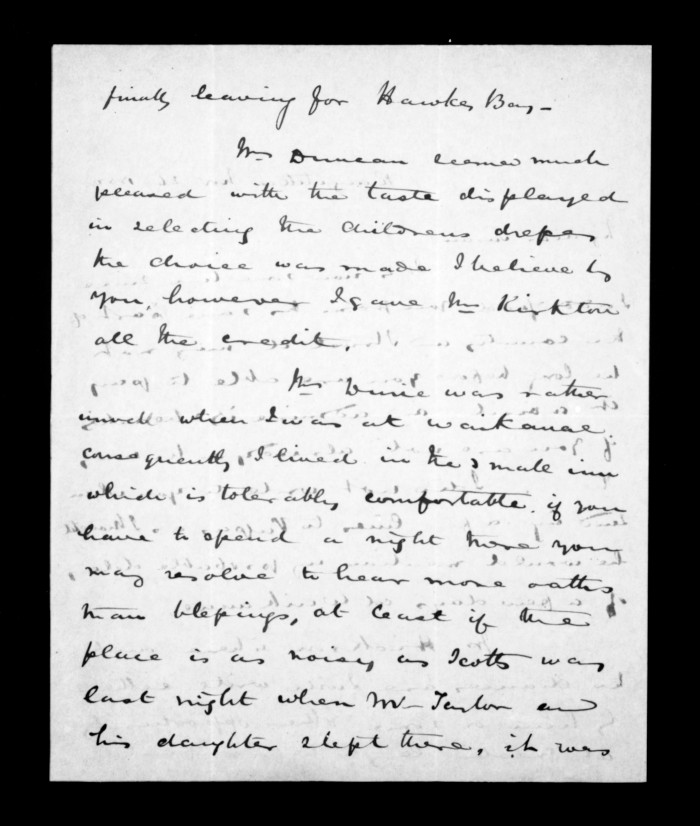 finally leaving for Hawkes Bay -
Mrs Duncan seemed much
pleased with the taste displayed
in selecting the childrens dresses
the choice was made I believe by
you, however I gave Mrs Kirkton
all the credit.
Mrs was rather
unwell when I was at Waikanae
consequently, I lived in the small inn
which is tolerably comfortable. if you
have to spend a night there you
may resolve to hear more oaths
than blessings, at least if the
place is as noisy as Scotts was
last night when Mr Taylor and
his daughter slept there, it was